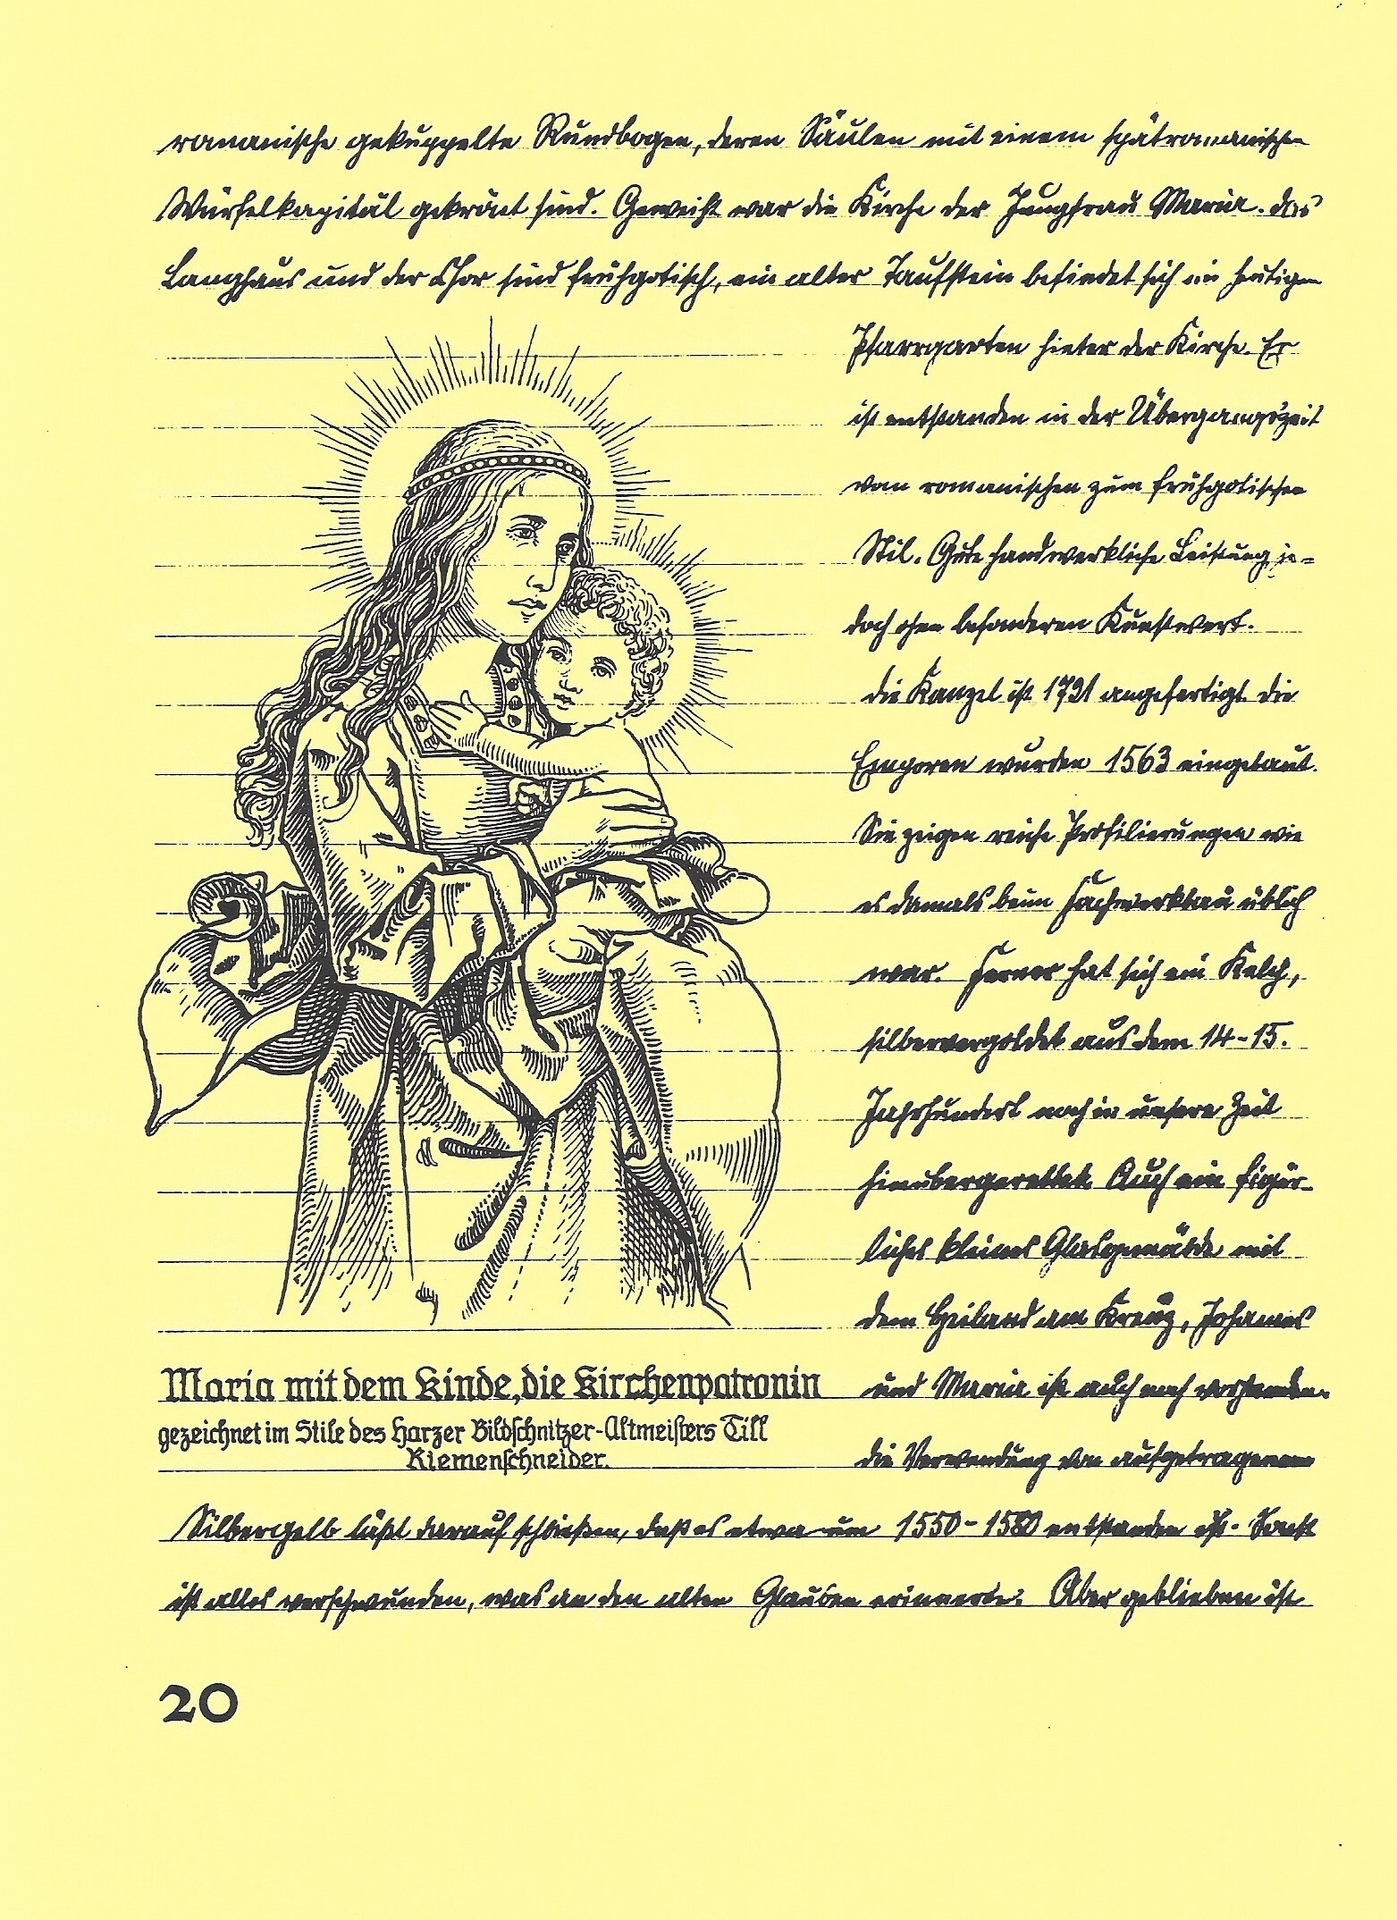 romanische gekuppelte Rundbogen, deren Säulen mit einem spätromanischen
Würfelkapitäl gekrönt sind. Geweiht war die Kirche der Jungfrau Maria. das
Langhaus und der Chor sind frühgotisch, ein alter Taufstein befindet sich im heutigen
Pfarrgarten hinter der Kirche. Er
ist entstanden in der Übergangszeit
vom romanischen zum frühgotischen
Stil. Gute handwerkliche Leistung je-
doch ohne besonderen Kunstwert.
die Kanzel ist 1731 angefertigt. die
Emporen wurden 1563 eingebaut.
Sie zeigen reiche Profilierungen wie
es damals beim Fachwerkbau üblich
war. Ferner hat sich ein Kelch,
silbervergoldet aus dem 14-15.
Jahrhundert noch in unsere Zeit
hinübergerettet. Auch ein figür-
liches kleines Glasgemälde mit
dem Heiland am Kreuz, Johannes
und Maria ist auch noch vorhanden.
die Verwendung von aufgetragenem
Maria mit dem Kinde, die Kirchenpatronin
gezeichnet im Stile des Harzer Bildschnitzer-Altmeisters Till
Riemenschneider.
Silbergelb läßt darauf schließen, daß es etwa um 1550-1580 entstanden ist. Sonst
ist alles verschwunden, was an den alten Glauben erinnerte. Aber geblieben ist
20